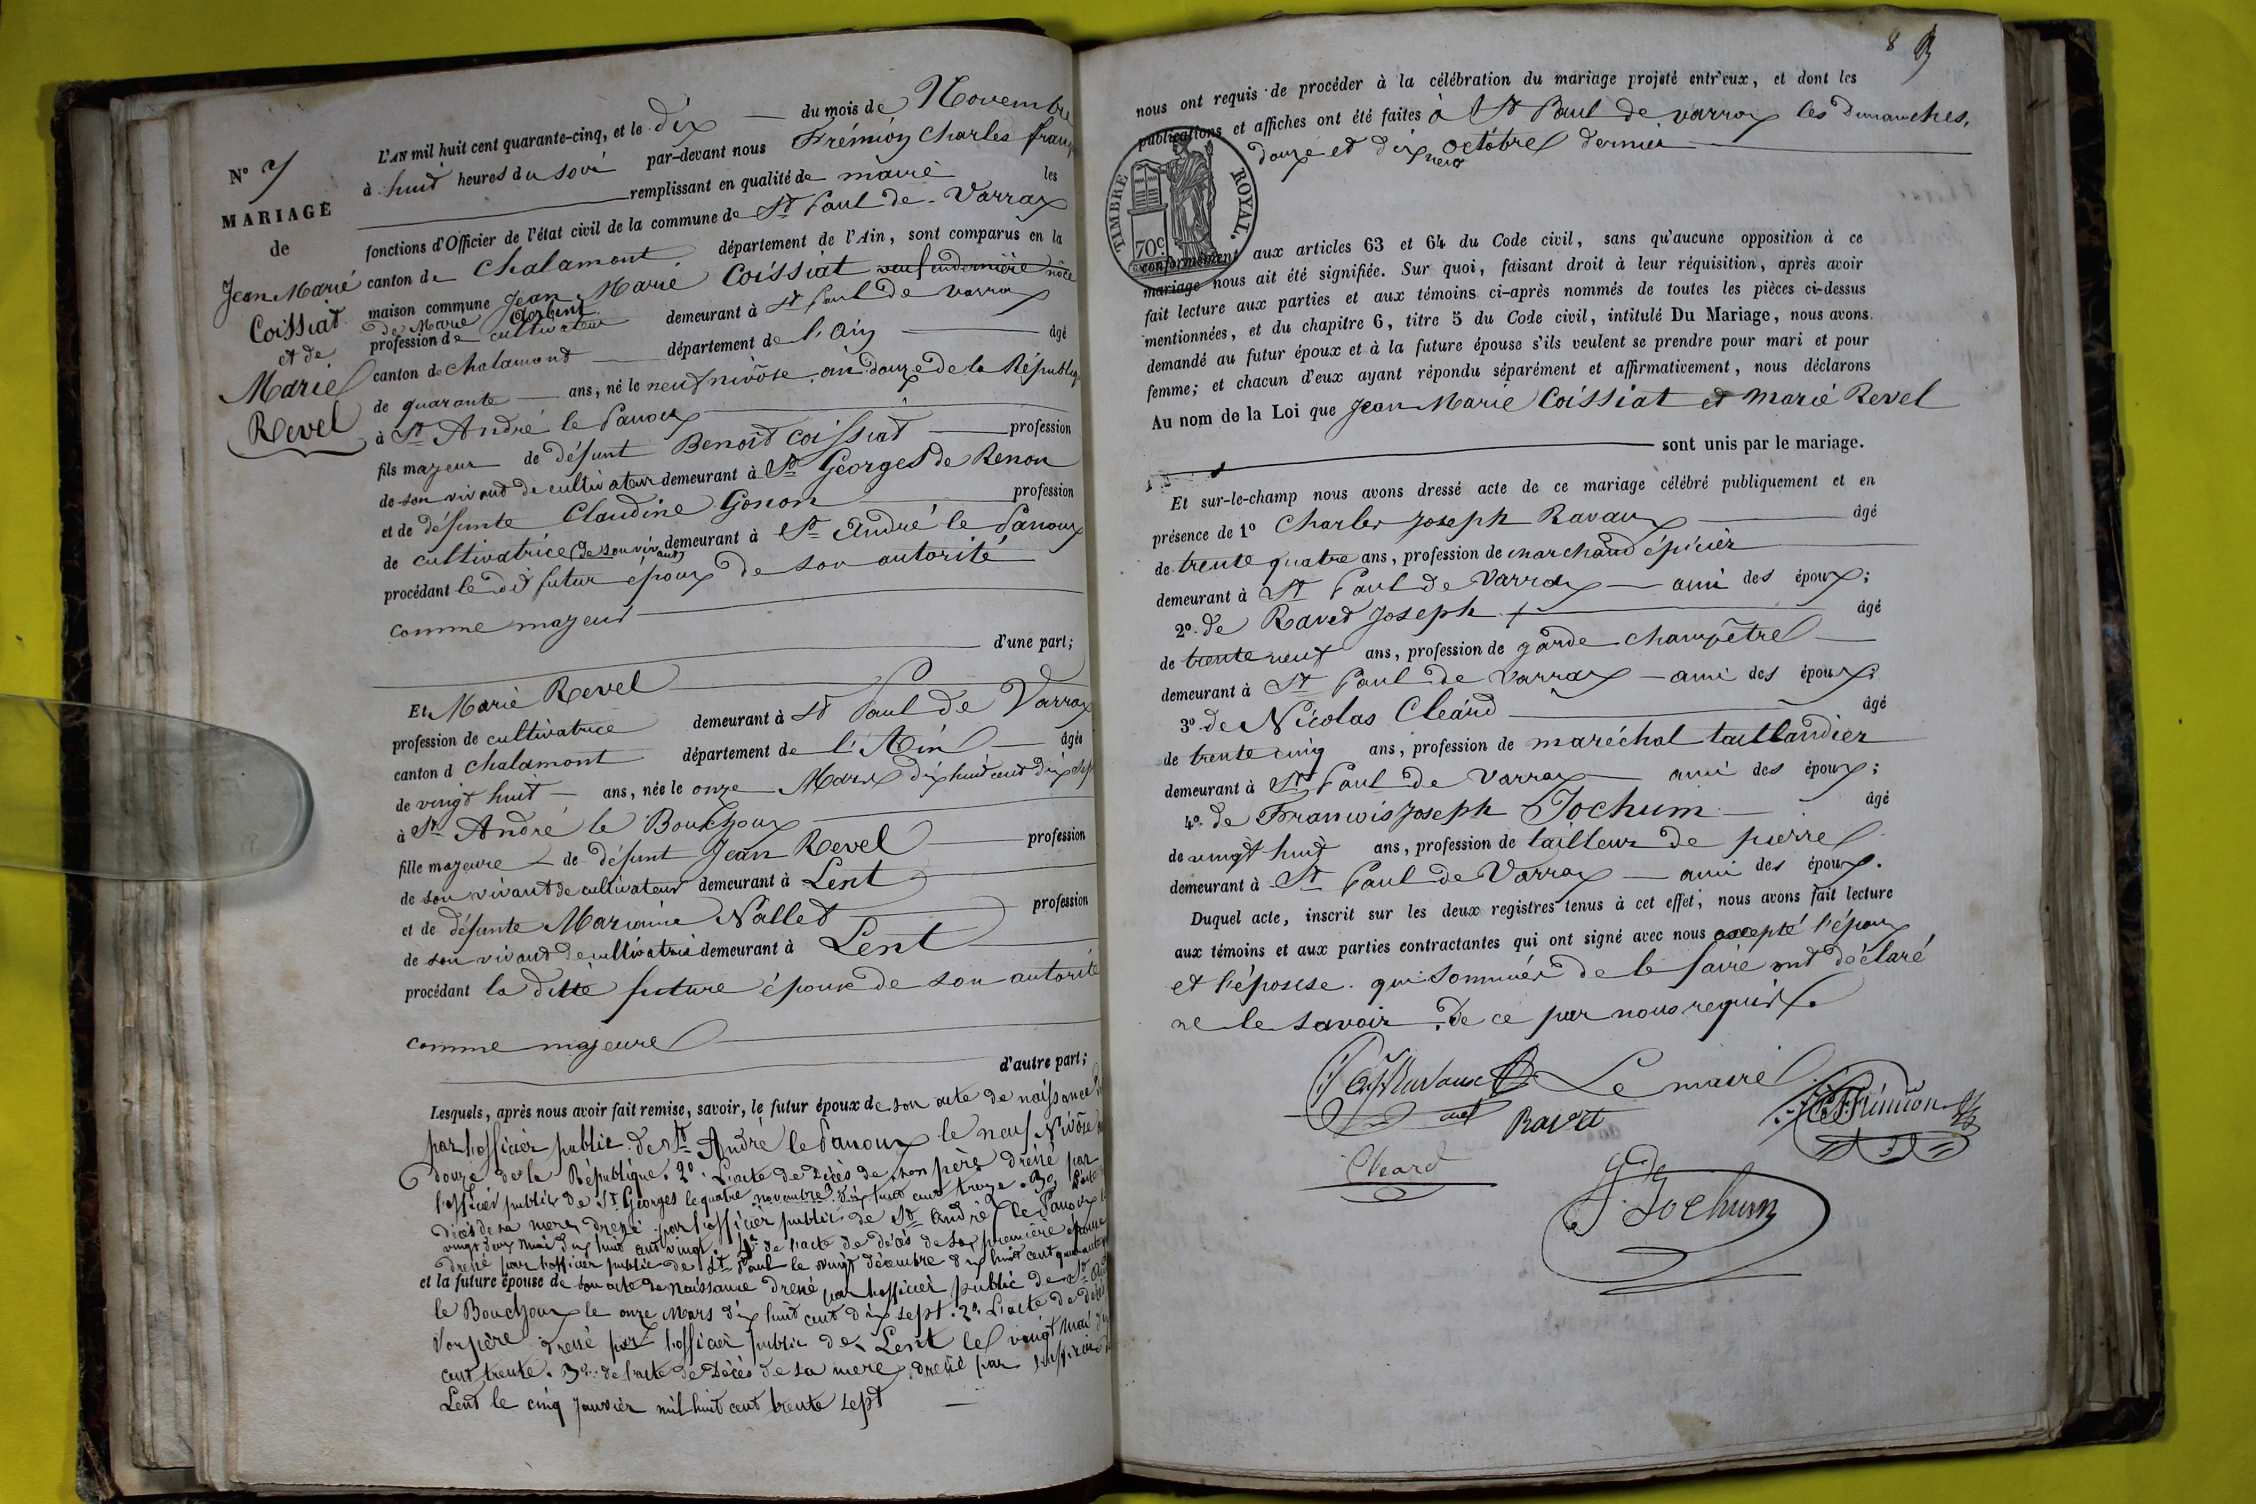 N° 7
MARIAGE
de
Jean Marie
Coissiat
et de
Marie
Revel
L'AN mil huit cent quarante-cinq, et le dix du mois de Novembre
à huit heures du soir par-devant nous Frémion Charles
remplissant en qualité de maire les
fonctions d'Officier de l'état civil de la commune de St Paul de Varrax
canton de Chalamont département de l'Ain, sont comparus en la
maison commune Jean Marie Coissiat veuf en dernière nôce
de Marie
profession de cultivateur demeurant à St Paul de Varrax
canton de Chalamont département de l'Ain âgé
de quarante ans, né le neuf nivôse an douze de la République
à St André le Panoux
fils majeur de défunt Benoît Coissiat profession
de son vivant de cultivateur demeurant à St Georges de Renon
et de défunte Claudine Gonon profession
de cultivatrice (de son vivant) demeurant à St André le Panoux
procédant le dit futur époux de son autorité
comme majeur
d'une part;
Et Marie Revel
profession de cultivatrice demeurant à St Paul de Varrax
canton d Chalamont département de l'Ain âgée
de vingt huit ans, née le onze Mars dix huit cent dix sept
à St André le Bouchoux
fille majeure de défunt Jean Revel profession
de son vivant de cultivateur demeurant à Lent
et de défunte Marianne Nallet profession
de son vivant de cultivatrice demeurant à Lent
procédant la ditte future épouse de son autorité
comme majeure
d'autre part;
Lesquels, après nous avoir fait remise, savoir, le futur époux de son acte de naissance
par l'officier public de St André le Panoux le neuf Nivôse
douze de la République. 2° L'acte de décès de son père dressé par
l'officier public de St Georges le quatre novembre dix huit cent treize. 3°
décès de sa mere dressé par l'officier public de St André le Panoux
vingt deux mai dix huit cent vingt. 4° de l'acte de décès de sa première épouse
dressé par l'officier public de St Paul le vingt décembre dix huit cent
et la future épouse de son acte de naissance dressé par l'officier public de St
le Bouchoux le onze Mars dix huit cent dix sept. 2° L'acte de décès
son père dressé par l'officier public de Lent le vingt mai
cent trente. 3° de l'acte de décès de sa mere dressé par l'officier
Lent le cinq Janvier mil huit cent trente sept
8
nous ont requis de procéder à la célébration du mariage projeté entr'eux, et dont les
publications et affiches ont été faites à St Paul de varrax les dimanches,
douze et dix neuf octobre dernier
TIMBRE ROYAL.
70c
conformément aux articles 63 et 64 du Code civil, sans qu'aucune opposition à ce
mariage nous ait été signifiée. Sur quoi, faisant droit à leur réquisition, après avoir
fait lecture aux parties et aux témoins ci-après nommés de toutes les pièces ci-dessus
mentionnées, et du chapitre 6, titre 5 du Code civil, intitulé Du Mariage, nous avons
demandé au futur époux et à la future épouse s'ils veulent se prendre pour mari et pour
femme; et chacun d'eux ayant répondu séparément et affirmativement, nous déclarons
Au nom de la Loi que Jean Marie Coissiat et Marie Revel
sont unis par le mariage.
Et sur-le-champ nous avons dressé acte de ce mariage célébré publiquement et en
présence de 1° Charles Joseph Ravaux âgé
de trente quatre ans, profession de marchand épicier
demeurant à St Paul de Varrax ami des époux;
2° de Ravet Joseph âgé
de trente neuf ans, profession de garde champêtre
demeurant à St Paul de Varrax ami des époux;
3° de Nicolas Cléard âgé
de trente cinq ans, profession de maréchal taillandier
demeurant à St Paul de Varrax ami des époux;
4° de Francois Joseph Jochum âgé
de vingt huit ans, profession de tailleur de pierre
demeurant à St Paul de Varrax ami des époux.
Duquel acte, inscrit sur les deux registres tenus à cet effet, nous avons fait lecture
aux témoins et aux parties contractantes qui ont signé avec nous excepté l'époux
et l'épouse qui sommés de le faire ont déclaré
ne le savoir de ce par nous requis.
Le maire
Ravet
Cleard
Jochum